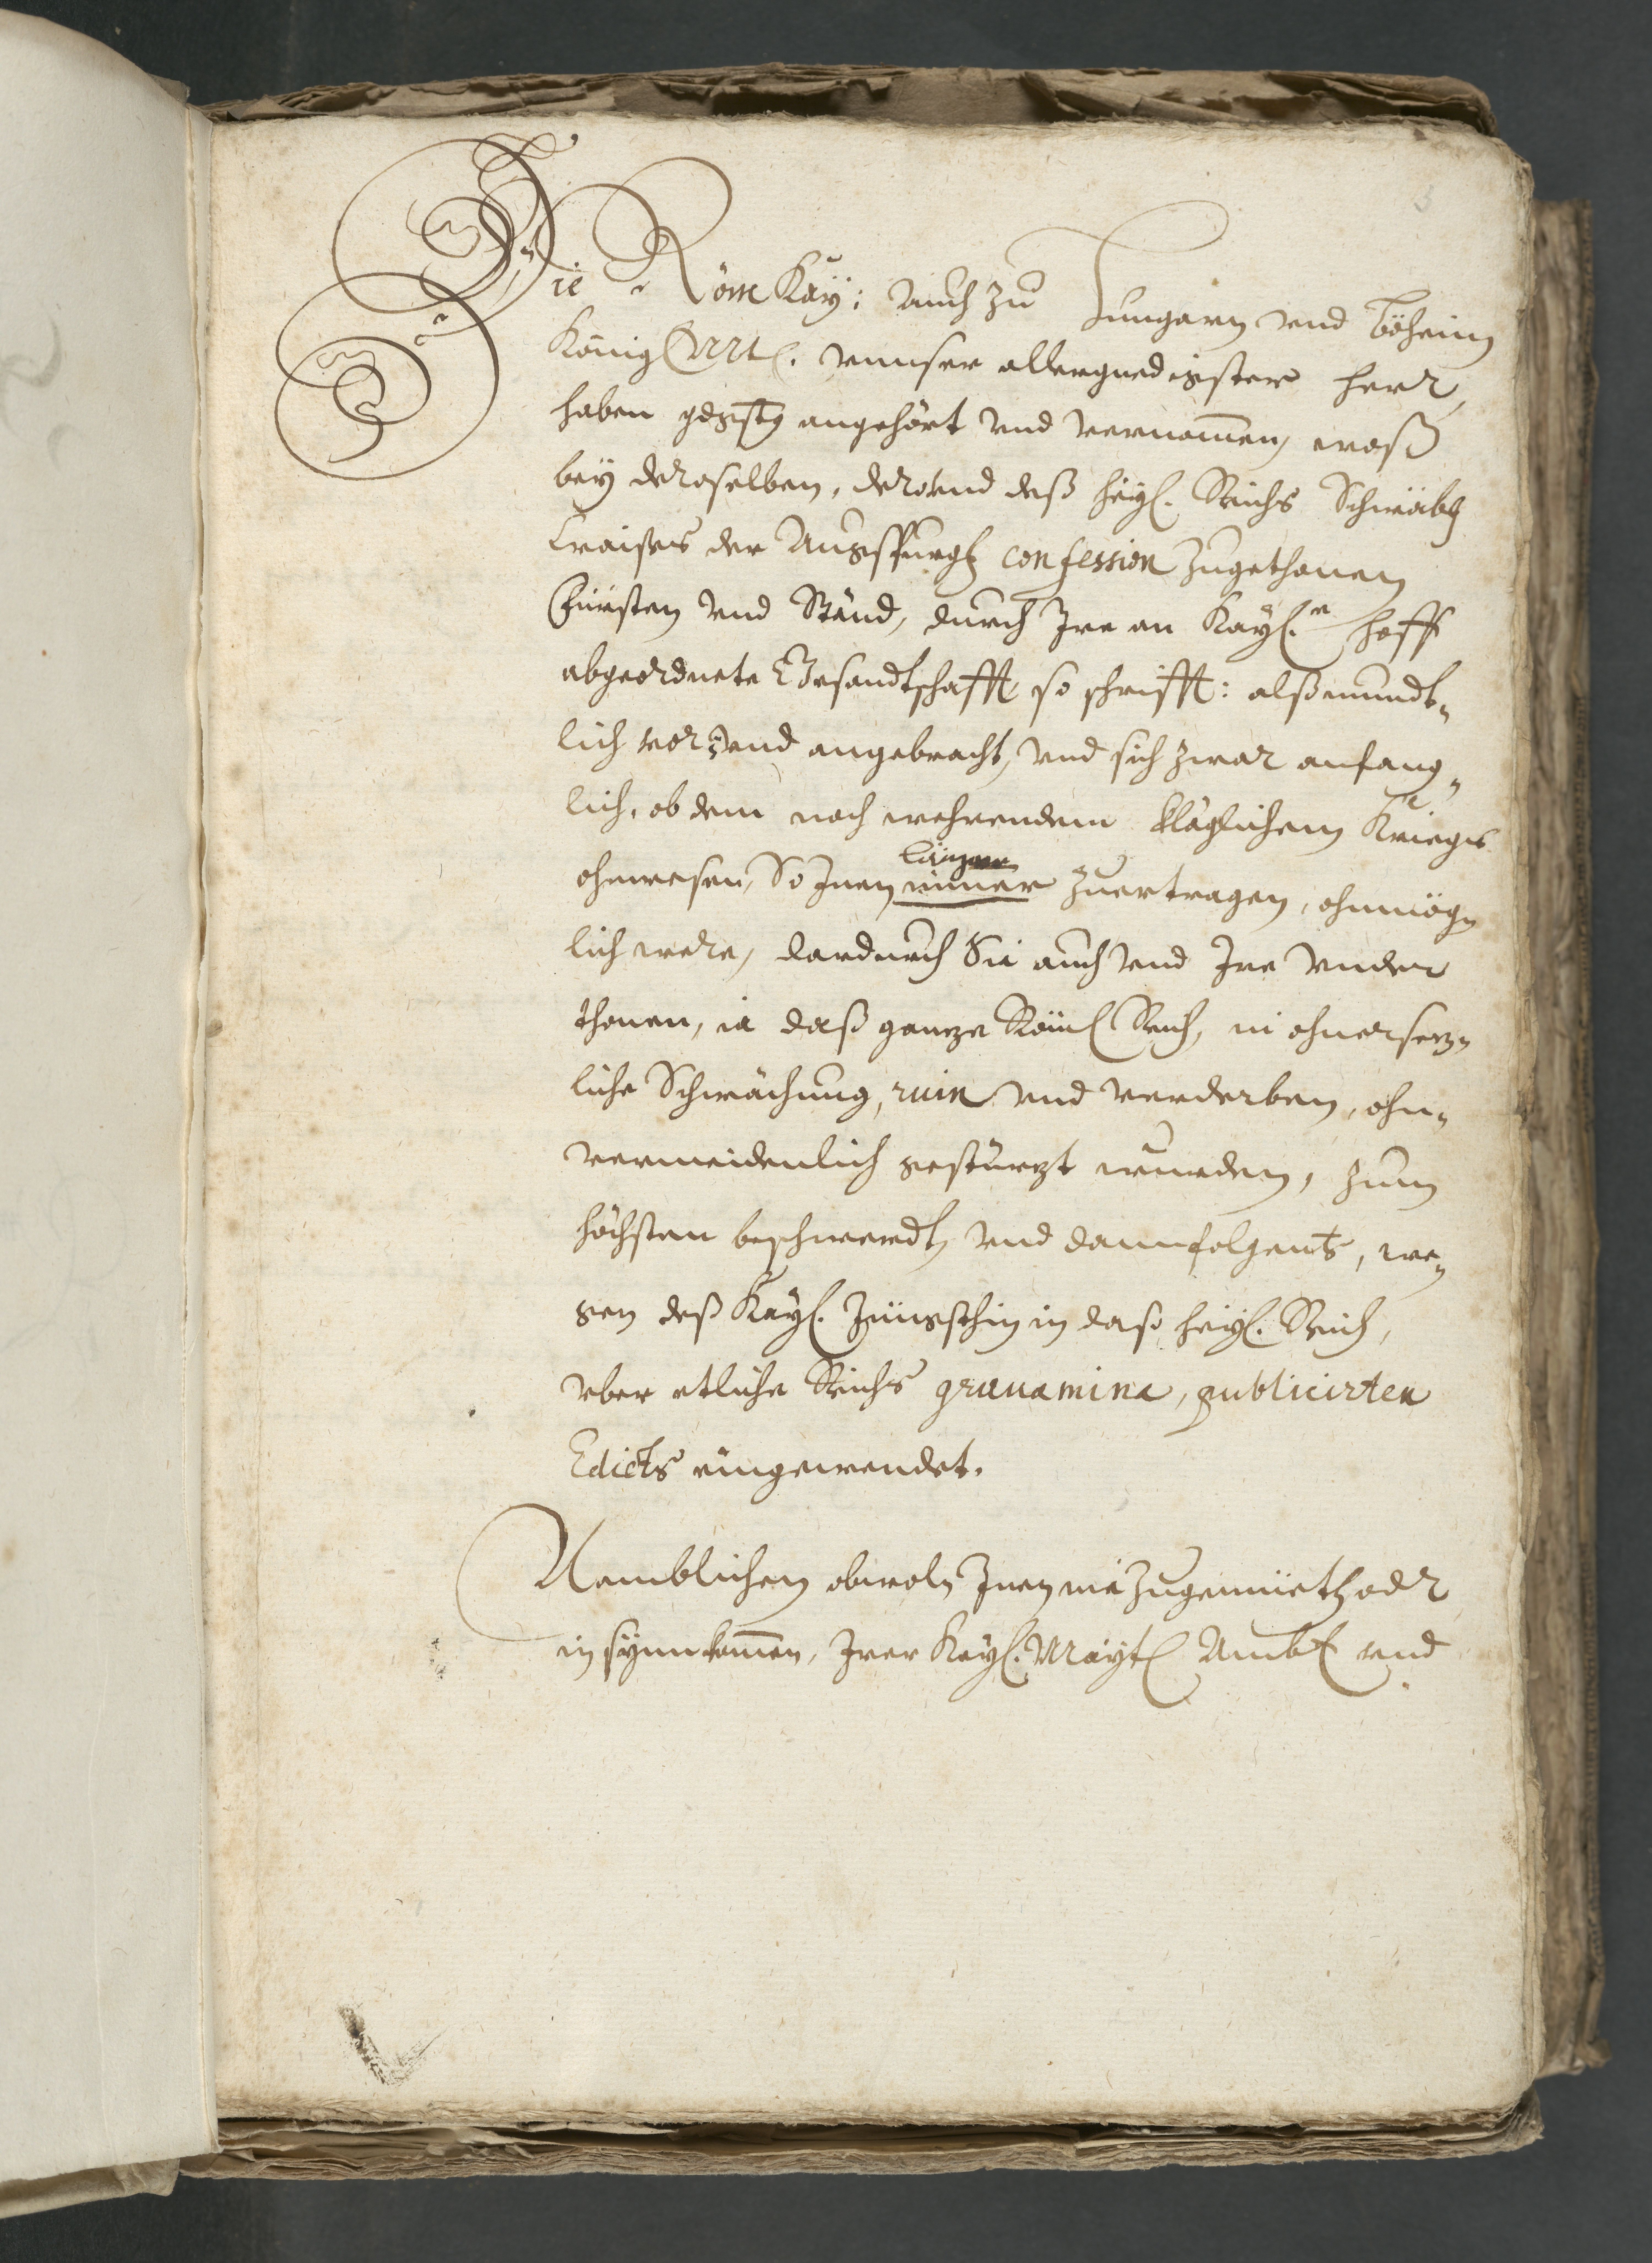 Die Röm Kay: Auch zu Hungarn vnd Böheim
König Mtt. vnnser allergnedigister Herr,
haben gdgstg angehört vnd vernommen, waß
bey deroselben, dero vnd deß heyl. Reichs Schwäb:
Craises der Augspurg: confession zugethonen
Fürsten vnd Ständ, durch Ire an Kayl.n hoff
abgeordnete Gesandtschafft so schrifft: alß mundt„
lich vor: vnd angebracht, vnd sich zwar anfang„
lich, ob dem noch wehrendem kläglichem Kriegs
ohnwesen, So Inen länger immer zuertragen, ohnmög„
lich were, dardurch Sie auch vnd Ire Vnder
thonen, ia daß gancze Röml Reich, in ohnersecz„
liche Schwächung, ruin vnd verderben, ohn„
vermeidenlich gestürzt wurden, zum
höchsten beschwerdt, vnd dann folgents, we„
gen deß Kayl. Jüngsthin in daß heyl. Reich,
vber etliche Reichs grauamina, publicirten
Edicts eingewendet.
Namblichen obwoln Inen nie zugemüeth oder
in synn komen, Irer Kayl. Mayt Ambt vnd